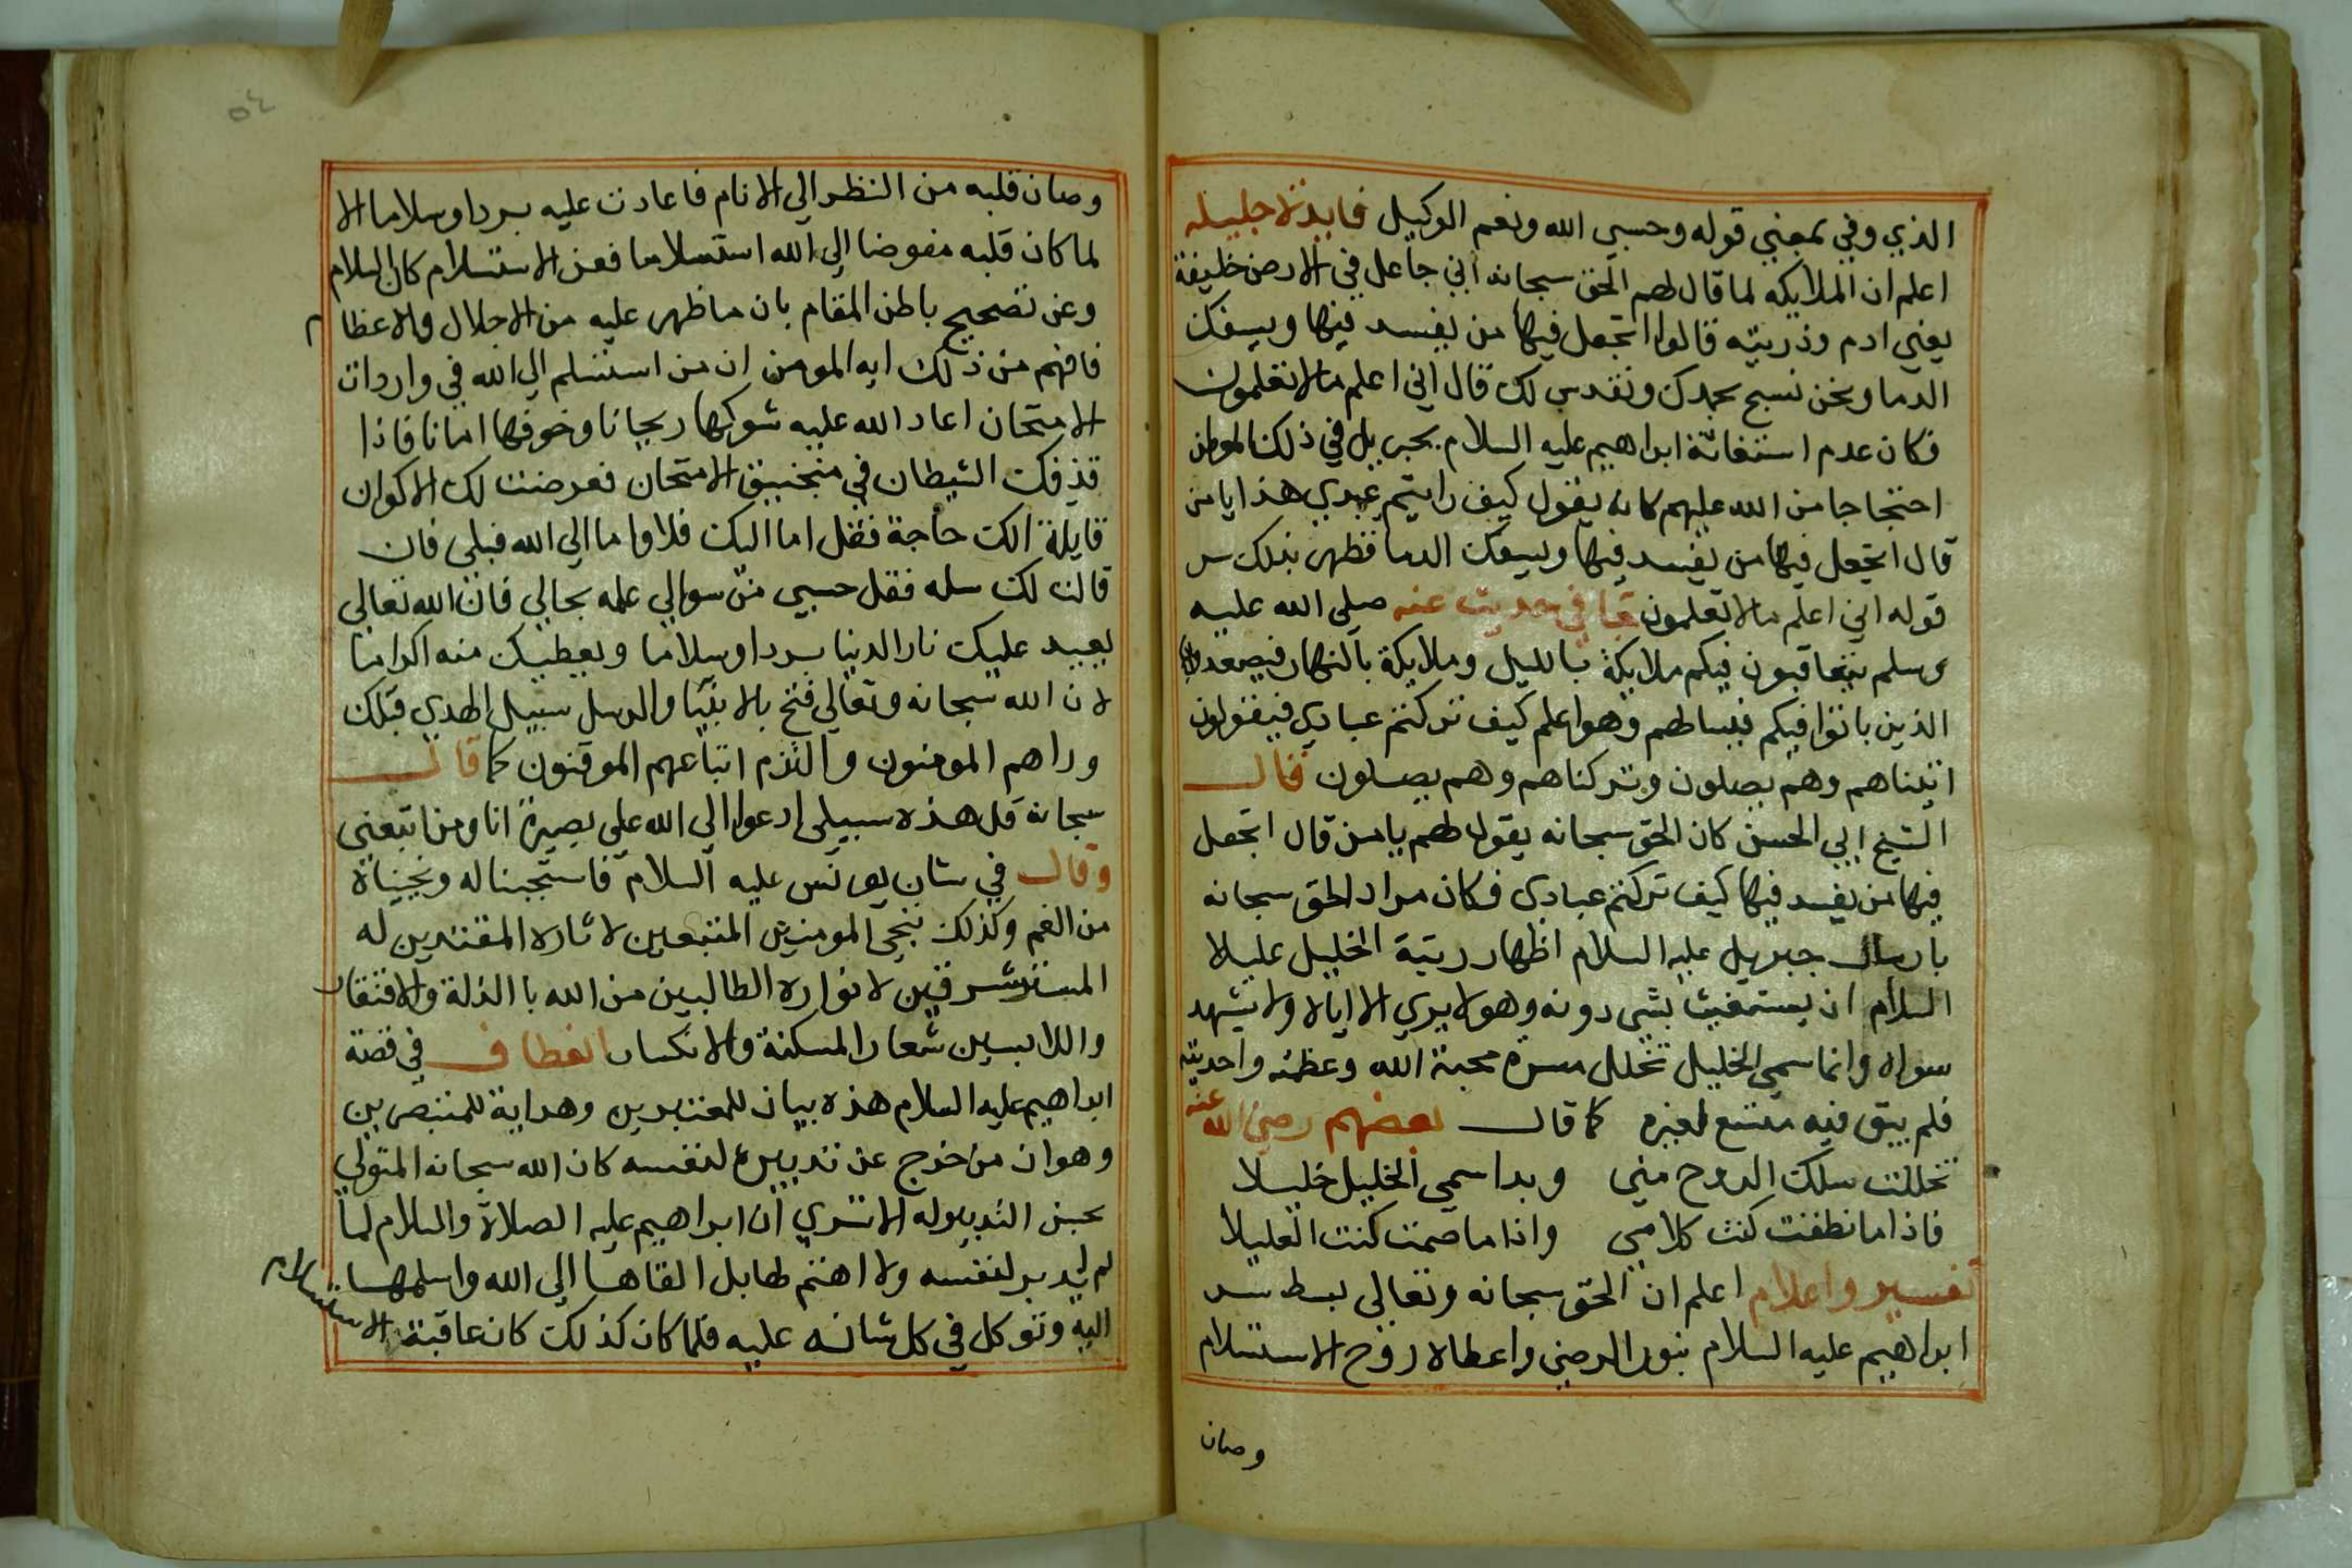 الذي وفي بمعني قوله وحسبي الله ونعم الوكيل فايدة جليله
اعلم ان الملايكه لما قال لهم الحق سبحانه اني جاعل في الارض خليفة
يعني ادم وذريته قالوا اتجعل فيها من يفسد فيها ويسفك
الدما ونحن نسبح بحمدك ونقدس لك قال اني اعلم ما لا تعلمون
فكان عدم استغاثة ابراهيم عليه السلام بجبريل في ذلك الموطن
احتجاجا من الله عليهم كانه يقول كيف رايتم عبدي هذا يا من
قال اتجعل فيها من يفسد فيها ويسفك الدما فظهر بذلك سر
قوله اني اعلم ما لا تعلمون في حديث عنه صلي الله عليه
وسلم يتعاقبون فيكم ملايكة بالليل وملايكة بالنهار فيصعد
الذين باتوا فيكم فيسالهم وهو اعلم كيف تركتم عبادي فيقولون
اتيناهم وهم يصلون وتركناهم وهم يصلون فقال
الشيخ ابي الحسن كان الحق سبحانه يقول لهم يا من قال اتجعل
فيها من يفسد فيها كيف تركتم عبادي فكان مراد الحق سبحانه
بارسال جبريل عليه السلام اظهار رتبة الخليل عليه
السلام ان يستغيث بشي دونه وهو لا يري الا اياه ولا يشهد
سواه وانما سمي الخليل تخلل سره محبة الله وعظمته واحديته
فلم يبق فيه متسع لغيره كما قال بعضهم رضي الله عنه
تخللت سلك الروح مني وبدا سمي الخليل خليلا
فاذا ما نطقت كنت كلامي واذا ما صمت كنت العليلا
تفسير واعلام اعلم ان الحق سبحانه وتعالي بسط سر
ابراهيم عليه السلام بنور الرضي واعطاه روح الاستسلام
وصان
٥٤
وصان قلبه من النظر الي الانام فاعادت عليه بردا وسلاما الا
لما كان قلبه مفوضا الي الله استسلاما فعن الاستسلام كان السلام
وعن تصحيح باطن المقام بان ما ظهر عليه من الاجلال والاعظام
فافهم من ذلك ايه المومن ان من استسلم الي الله في واردات
الامتحان اعاد الله عليه شوكها ريحانا وخوفها امانا فاذا
قذفك الشيطان في منجنيق الامتحان فعرضت لك الاكوان
قايلة الك حاجة فقل اما اليك فلا واما الي الله فبلي فان
قالت لك سله فقل حسبي من سوالي علمه بحالي فان الله تعالي
يعيد عليك نار الدنيا بردا وسلاما ويعطيك منه اكراما
لان الله سبحانه وتعالي فتح بالانبيا والرسل سبيل الهدي فسلك
وراهم المومنون والتزم اتباعهم الموقنون كما قال
سبحانه قل هذه سبيلي ادعوا الي الله علي بصيرة انا ومن اتبعني
وقال في شان يونس عليه السلام فاستجبنا له ونجيناه
من الغم وكذلك ننجي المومنين المتبعين لاثاره المقتدين له
المستشرقين لانواره الطالبين من الله باالذلة والافتقار
واللابسين شعار المسكنة والانكسار انعطاف في قصة
ابراهيم عليه السلام هذه بيان للمعتبرين وهداية للمتبصرين
وهو ان من خرج عن تدبيره لنفسه كان الله سبحانه المتولي
بحسن التدبير له الا تري ان ابراهيم عليه الصلاة والسلام لما
لم يدبر لنفسه ولا اهتم لها بل القاها الي الله واسلمها
اليه وتوكل في كل شانه عليه فلما كان كذلك كان عاقبة الاستسلام